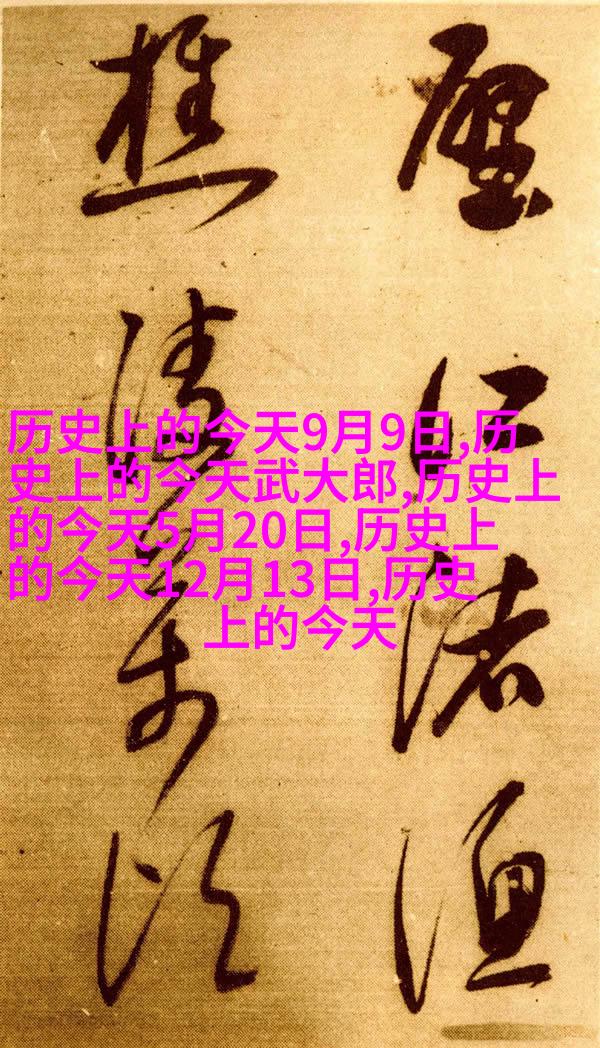 江渚漁
樵
历史上的今天9月9日,历
史上的今天武大郎,历史上
的今天5月20日,历史上
的今天12月13日,历史
上的今天